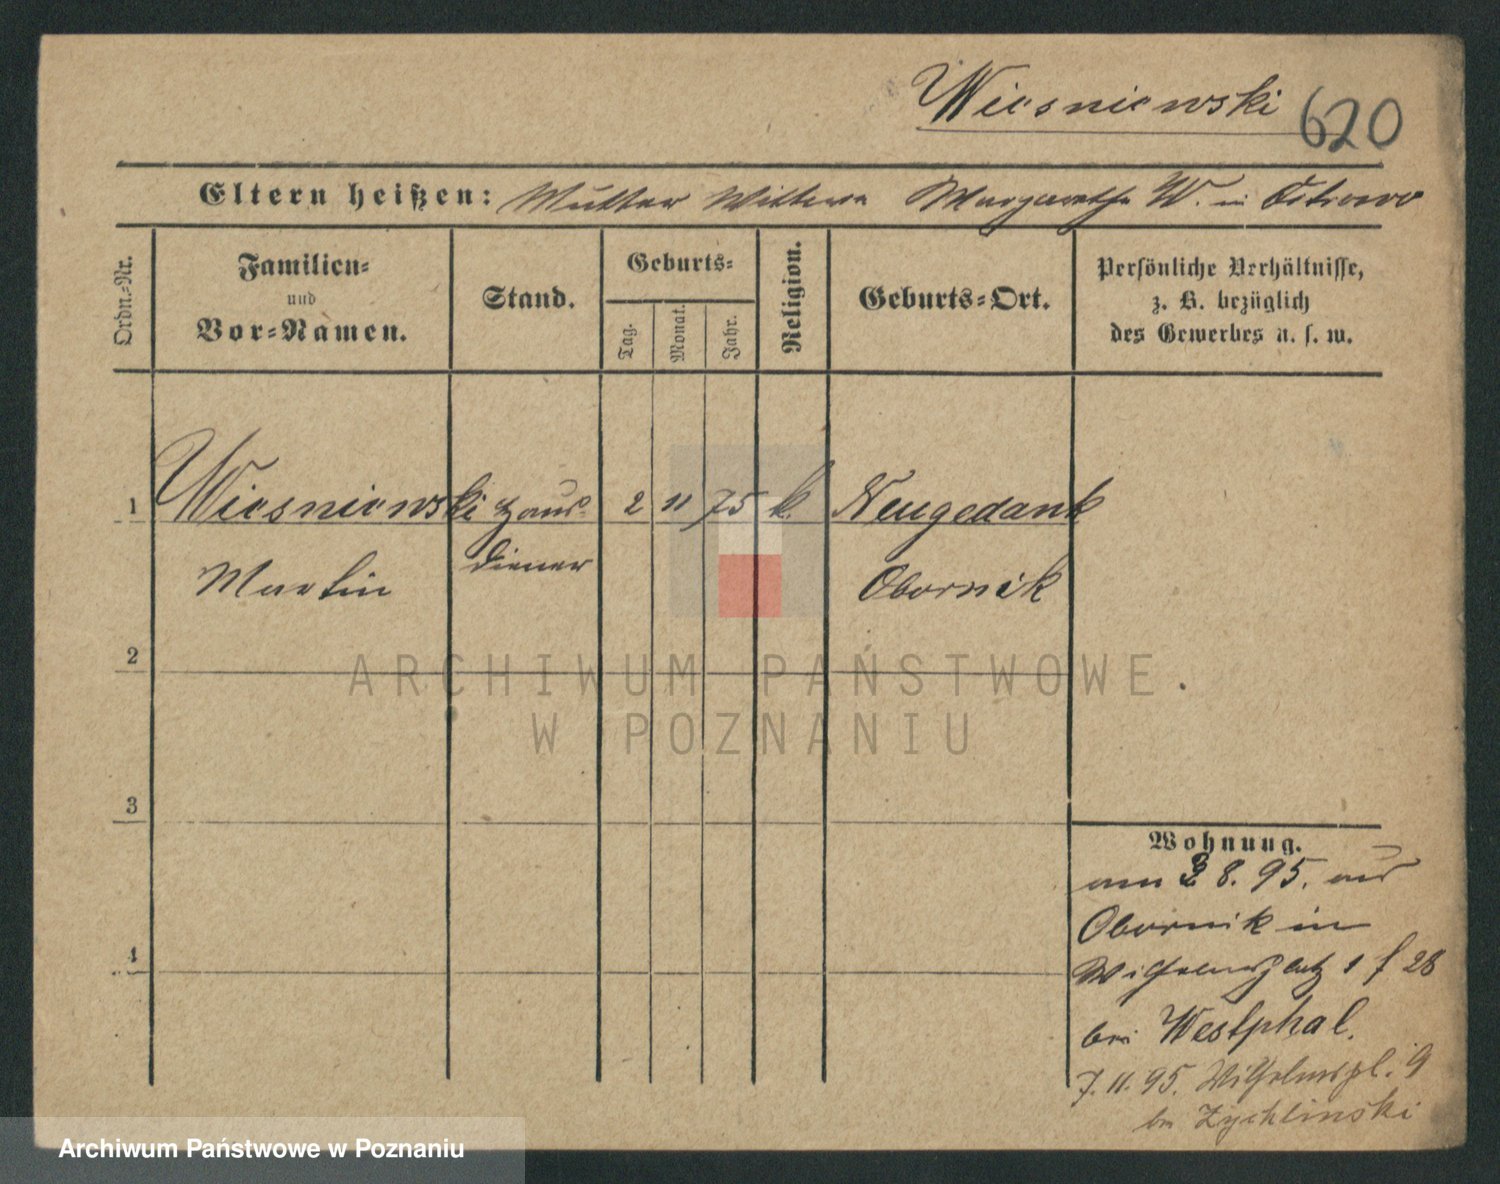 Wiesniewski 620
Eltern heißen: Mutter Wittwe Margarethe W. in Ostrowo
Ordn.-Nr.
Familien-
und
Vor-Namen.
Stand.
Geburts-
Tag.
Monat.
Jahr.
Religion.
Geburts-Ort.
Persönliche Verhältnisse,
z. B. bezüglich
des Gewerbes u. s. w.
1 Wiesniewski Haus- 2 11 75 k. Neugedank
Martin diener Obornik
2
3
4
Wohnung.
am 8. 95. aus
Obornik in
Wilhelmsplatz 1 f 28
bei Westphal.
7. 11. 95. Wilhelmspl. 9
bei Zychlinski
ARCHIWUM PAŃSTWOWE
W POZNANIU
Archiwum Państwowe w Poznaniu